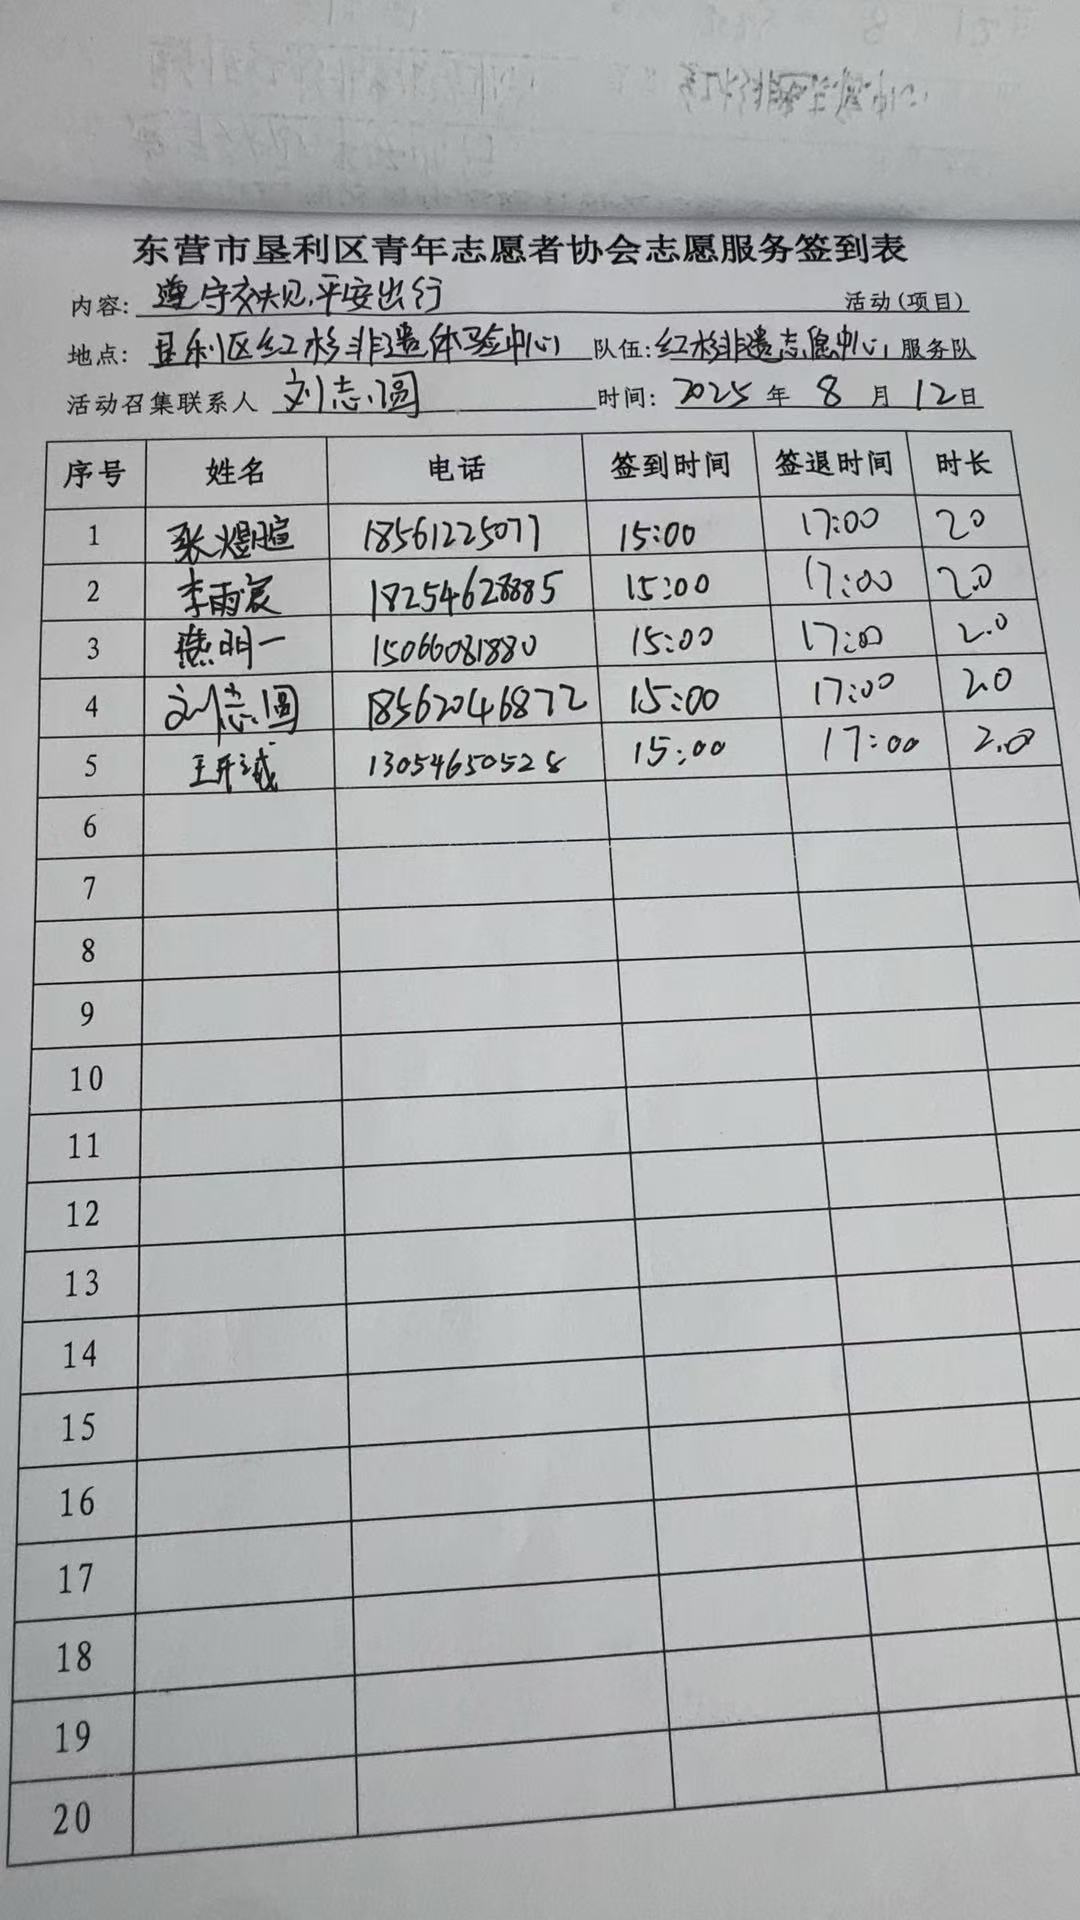 东营市垦利区青年志愿者协会志愿服务签到表
内容: 遵守交规,平安出行 活动(项目)
地点: 垦利区红杉非遗体验中心 队伍: 红杉非遗志愿中心 服务队
活动召集联系人 刘志圆 时间: 2025 年 8 月 12 日
序号 姓名 电话 签到时间 签退时间 时长
1 张煜暄 18561225077 15:00 17:00 2.0
2 李雨宸 18254628885 15:00 17:00 2.0
3 明一 15066081880 15:00 17:00 2.0
4 刘志圆 18562046872 15:00 17:00 2.0
5 王开诚 13054650528 15:00 17:00 2.0
6
7
8
9
10
11
12
13
14
15
16
17
18
19
20